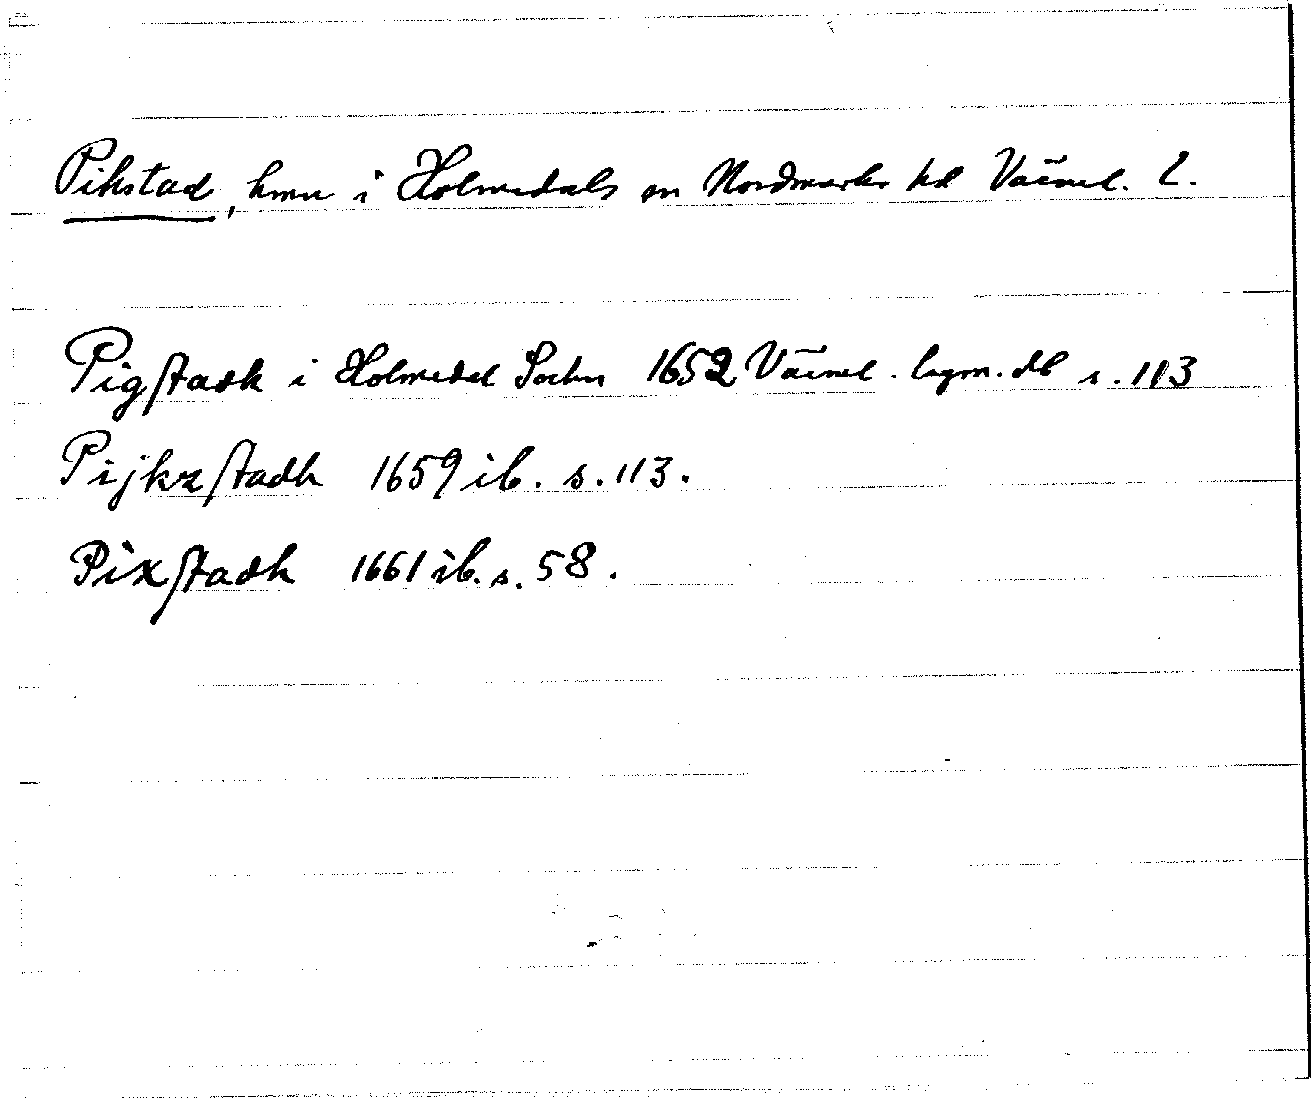 Pikstad, hmn i Holmedals sn Nordmarks hd Värml. l.
Pigstadh i Holmedal Sochn 1652 Värml. lagm. db s. 113
Pijkzstadh 1659 ib. s. 113.
Pixstadh 1661 ib. s. 58.